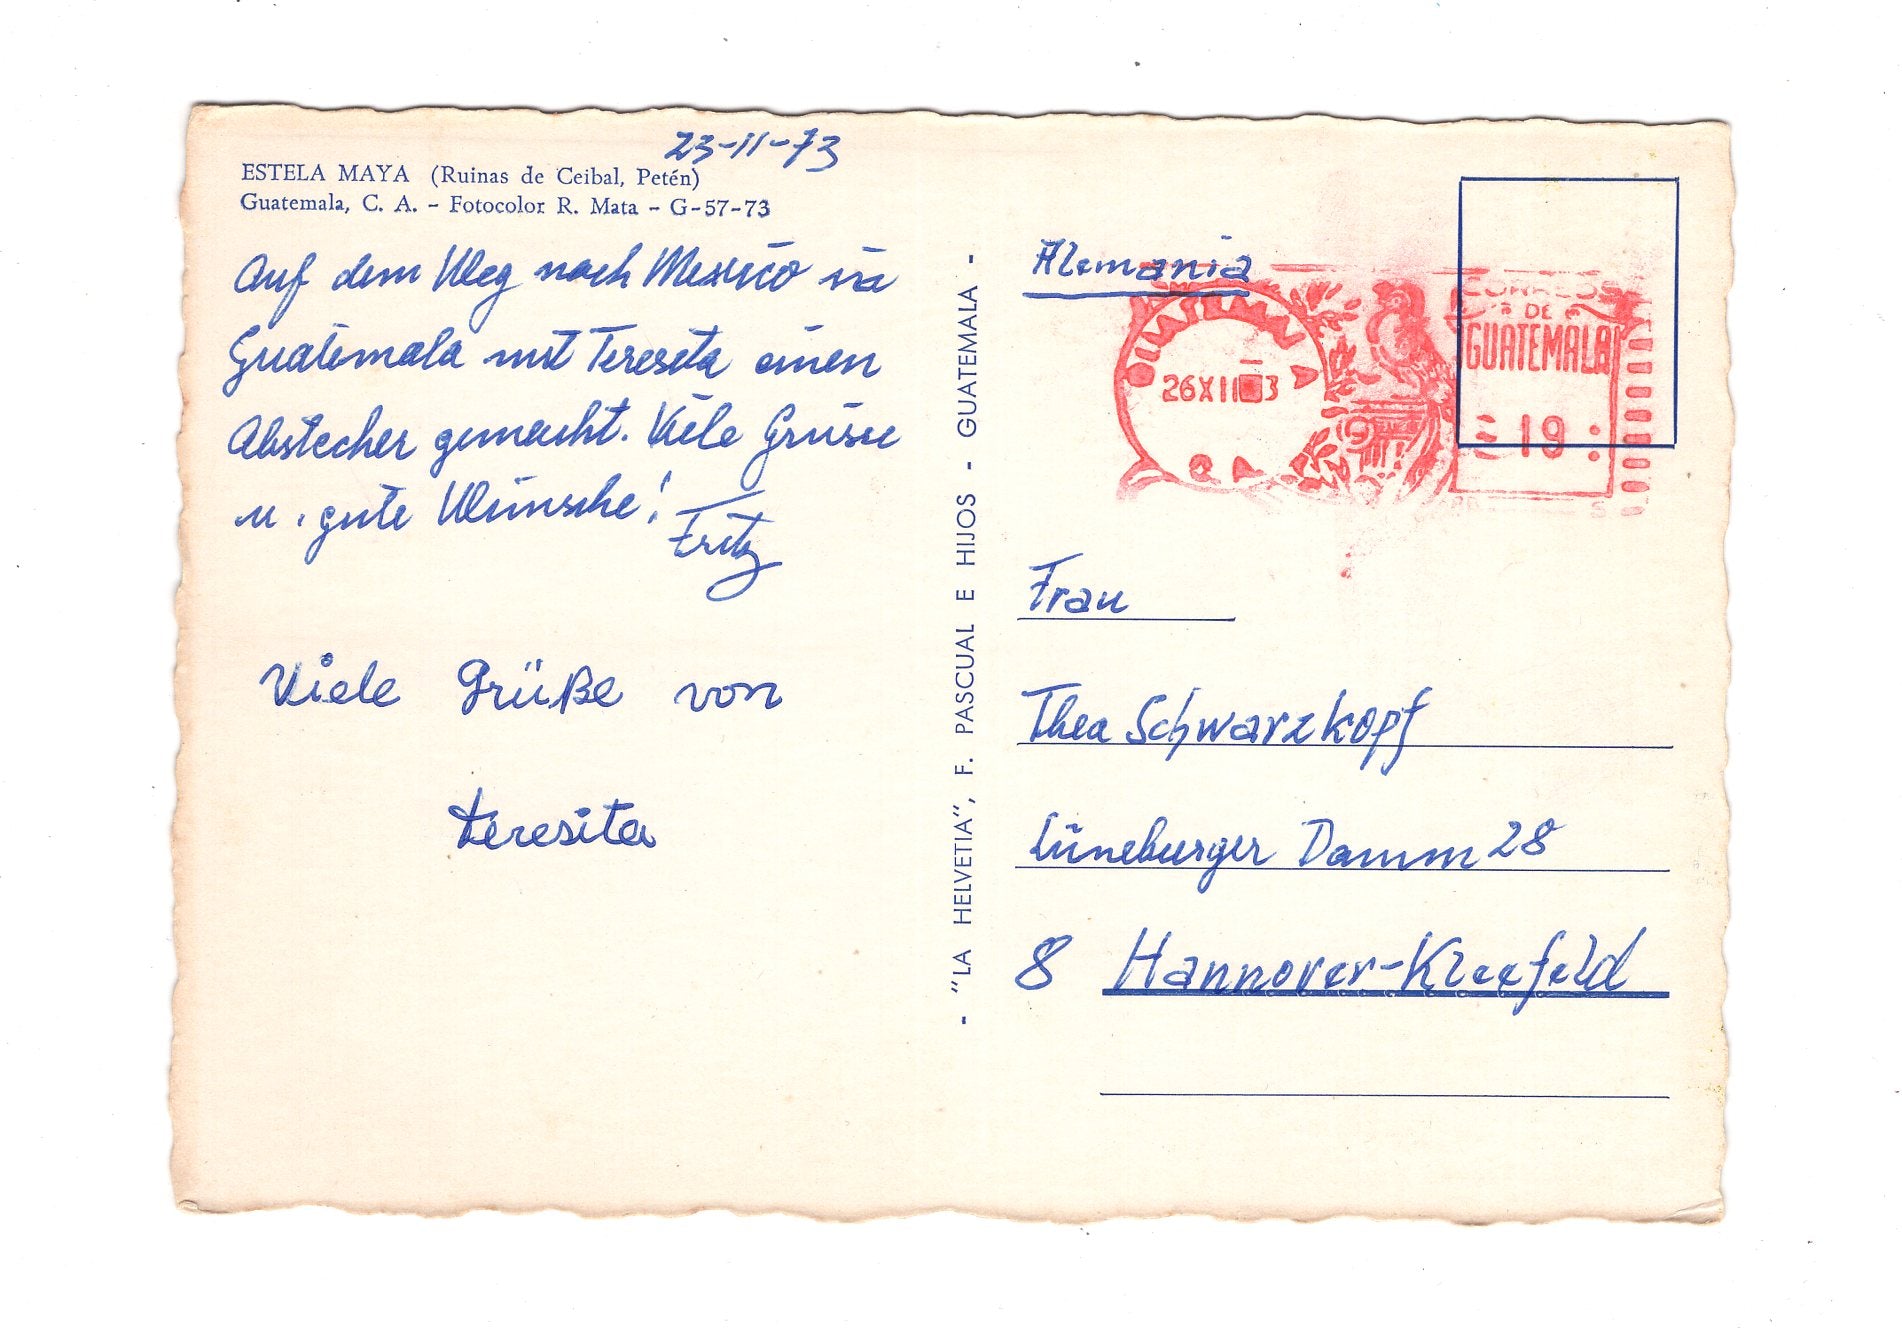 23-11-73
ESTELA MAYA (Ruinas de Ceibal, Petén)
Guatemala, C. A. - Fotocolor R. Mata - G-57-73
Auf dem Weg nach Mexico in
Guatemala mit Teresita einen
Abstecher gemacht. Viele Grüsse
u. gute Wünsche!
Fritz
Viele Grüße von
Teresita
- "LA HELVETIA", F. PASCUAL E HIJOS - GUATEMALA -
Alemania
GUATEMALA
26XII 3
C A
CORREOS
DE
GUATEMALA
19
Frau
Thea Schwarzkopf
Lüneburger Damm 28
8 Hannover-Kleefeld